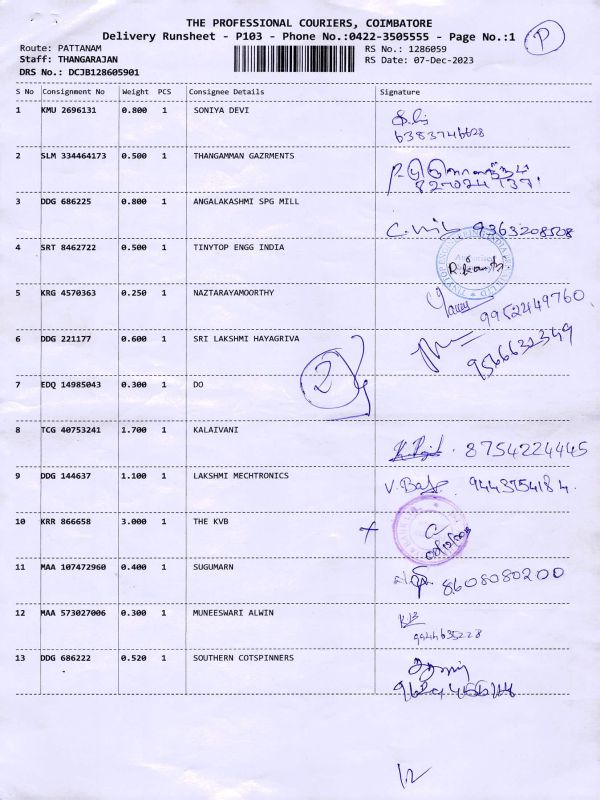 THE PROFESSIONAL COURIERS, COIMBATORE
Delivery Runsheet - P103 - Phone No.:0422-3505555 - Page No.:1
P
Route: PATTANAM
RS No.: 1286059
Staff: THANGARAJAN
RS Date: 07-Dec-2023
DRS No.: DCJB128605901
S No Consignment No Weight PCS Consignee Details Signature
1 KMU 2696131 0.800 1 SONIYA DEVI
6383746628
2 SLM 334464173 0.500 1 THANGAMMAN GAZRMENTS
3 DDG 686225 0.800 1 ANGALAKASHMI SPG MILL
9363208508
4 SRT 8462722 0.500 1 TINYTOP ENGG INDIA
5 KRG 4570363 0.250 1 NAZTARAYAMOORTHY
9952449760
6 DDG 221177 0.600 1 SRI LAKSHMI HAYAGRIVA
9566632349
2
7 EDQ 14985043 0.300 1 DO
8 TCG 40753241 1.700 1 KALAIVANI
8754224445
9 DDG 144637 1.100 1 LAKSHMI MECHTRONICS
9443754184
10 KRR 866658 3.000 1 THE KVB
11 MAA 107472960 0.400 1 SUGUMARN
8608080200
12 MAA 573027006 0.300 1 MUNEESWARI ALWIN
9944635228
13 DDG 686222 0.520 1 SOUTHERN COTSPINNERS
12